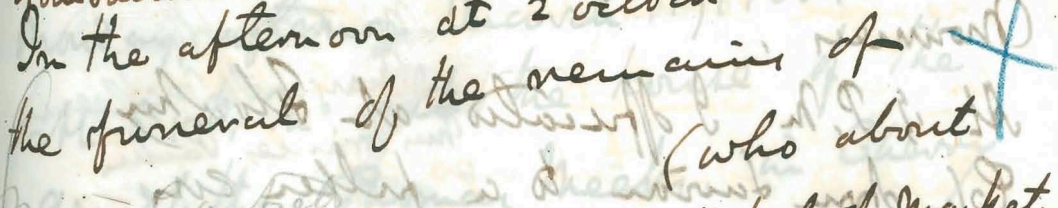 In the afternoon at 2 o'clock
the funeral of the remains of
(who about
Market